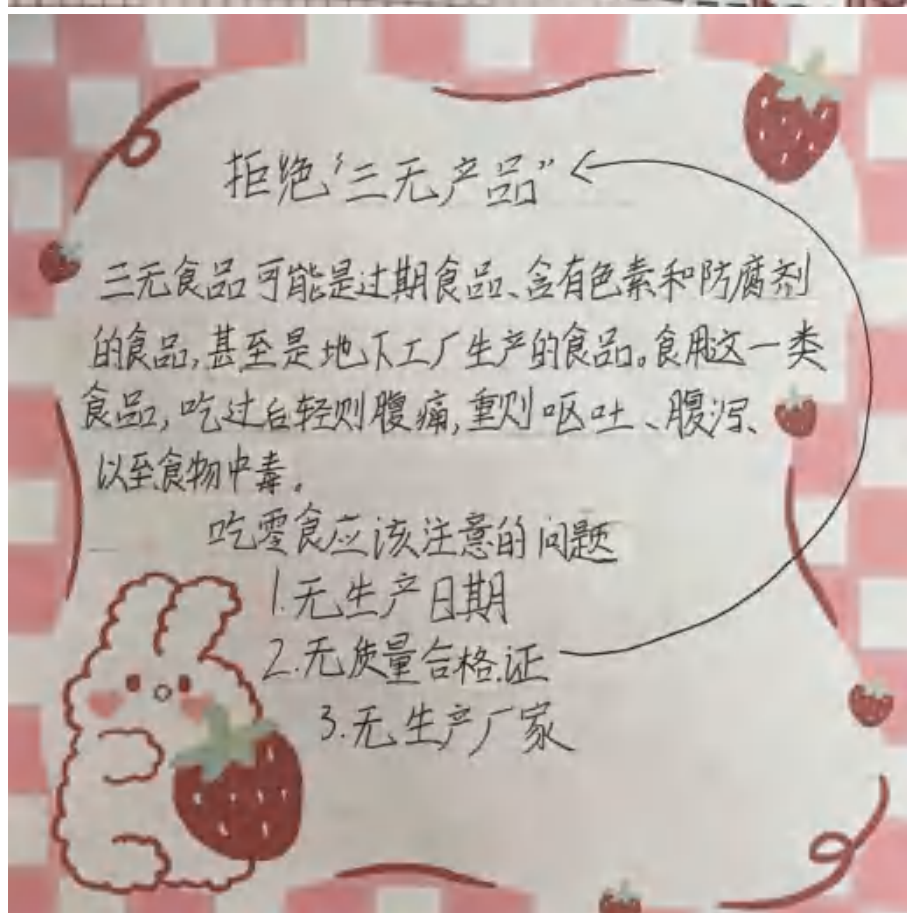 拒绝“三无产品”
三无食品可能是过期食品、含有色素和防腐剂
的食品,甚至是地下工厂生产的食品。食用这一类
食品,吃过后轻则腹痛,重则呕吐、腹泻、
以至食物中毒。
吃零食应该注意的问题
1.无生产日期
2.无质量合格证
3.无生产厂家